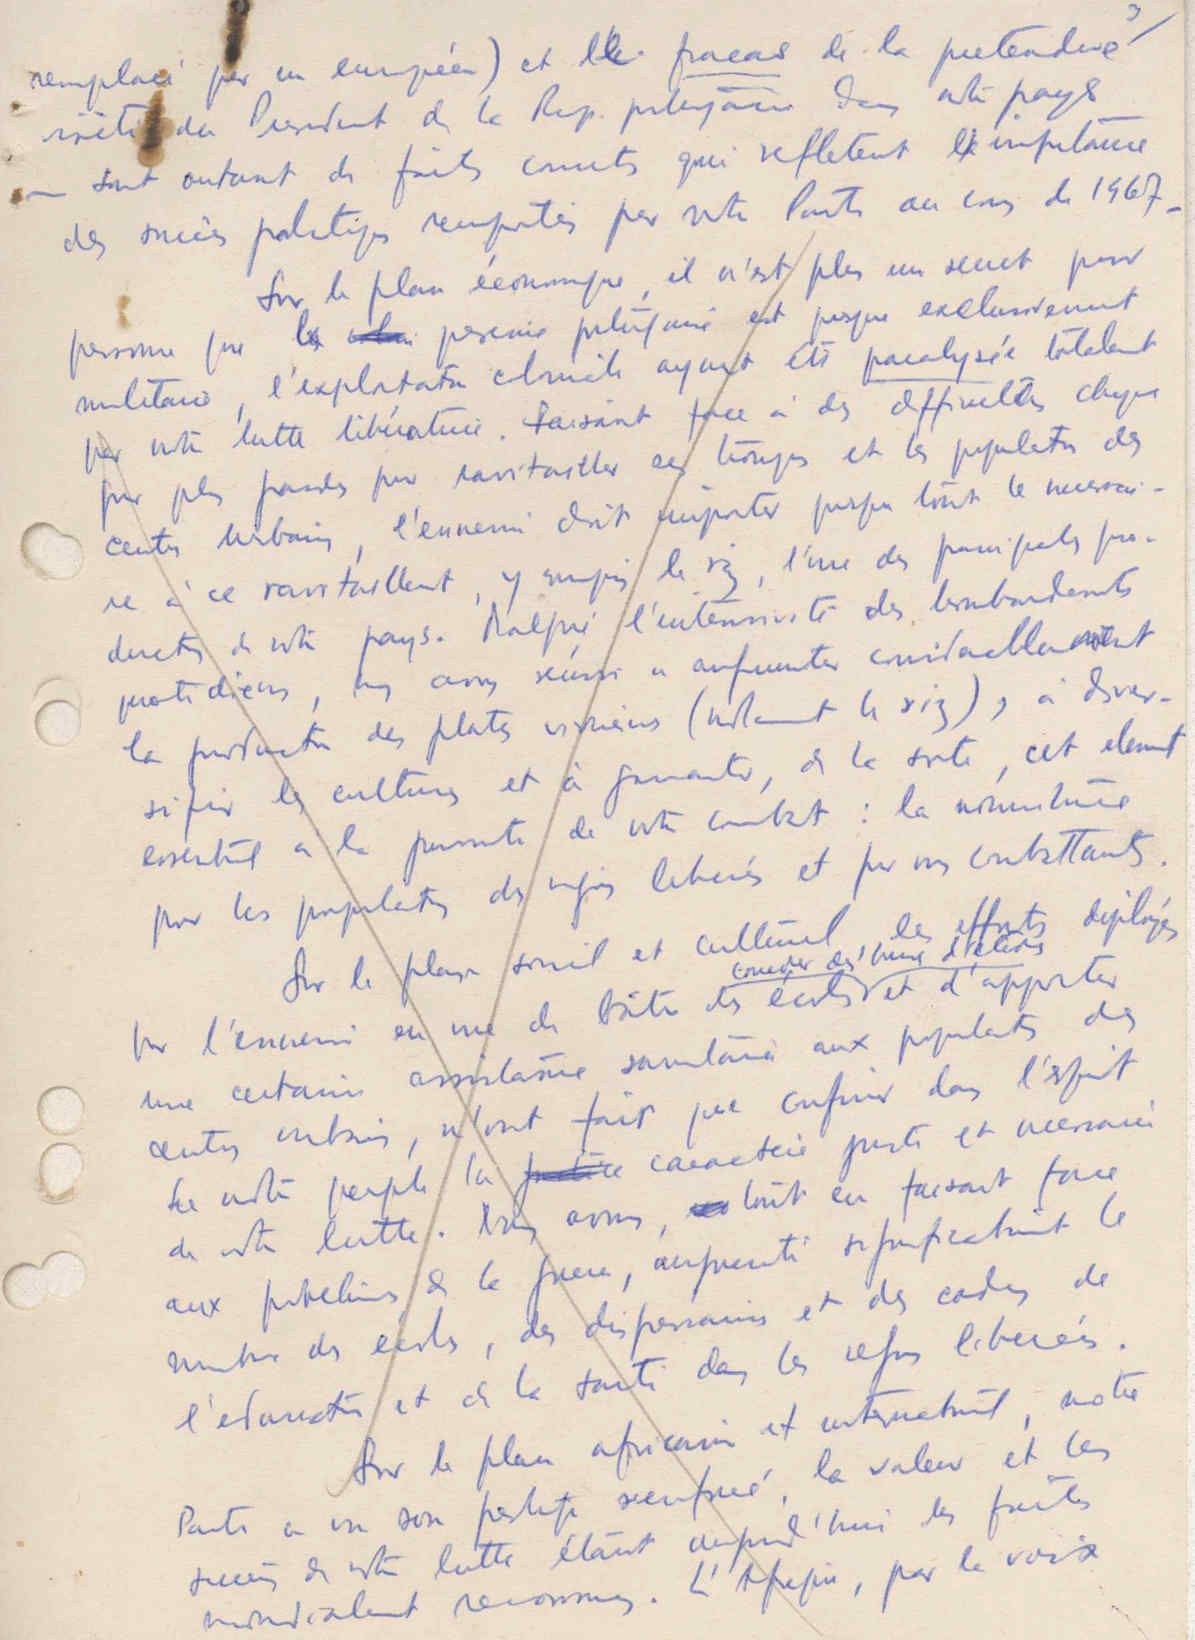 3/
remplacé par un européen) et le fracas de la pretendue
visite du President de la Rep. portugaise dans notre pays
— sont autant de faits concrets qui refletent l'importance
des succès politiques remportés par notre Parti au cours de 1967 -
Sur le plan économique, il n'est plus un secret pour
personne que la presence portugaise est presque exclusivement
militaire, l'exploitation coloniale ayant été paralysée totalement
par notre lutte libératrice. Faisant face à des difficultés chaque
jour plus grandes pour ravitailler ses troupes et les populations des
centres urbains, l'ennemi doit importer presque tout le necessai-
re à ce ravitaillement, y compris le riz, l'une des principales pro-
ductions de notre pays. Malgré l'intensivité des bombardements
quotidiens, nous avons réussi a augmenter considerablement
la production des plantes vivrières (notamment le riz), à diver-
sifier les cultures et à garantir, de la sorte, cet element
essentiel a la poursuite de notre combat : la nourriture
pour les populations des regions liberées et pour nos combattants.
Sur le plan social et culturel les efforts déployés
conceder des bourses d'études
par l'ennemi en vue de bâtir des écoles et d'apporter
une certaine assistance sanitaire aux populations des
centres urbains, n'ont fait que confirmer dans l'esprit
de notre peuple le caractère juste et necessaire
de notre lutte. Nous avons, tout en faisant face
aux problèmes de la guerre, augmenté significativement le
nombre des écoles, des dispensaires et des cadres de
l'education et de la santé dans les regions liberées.
Sur le plan africain et international, notre
Parti a vu son prestige renforcé, la valeur et les
succès de notre lutte étant aujourd'hui des faits
mondialement reconnus. L'Afrique, par la voix